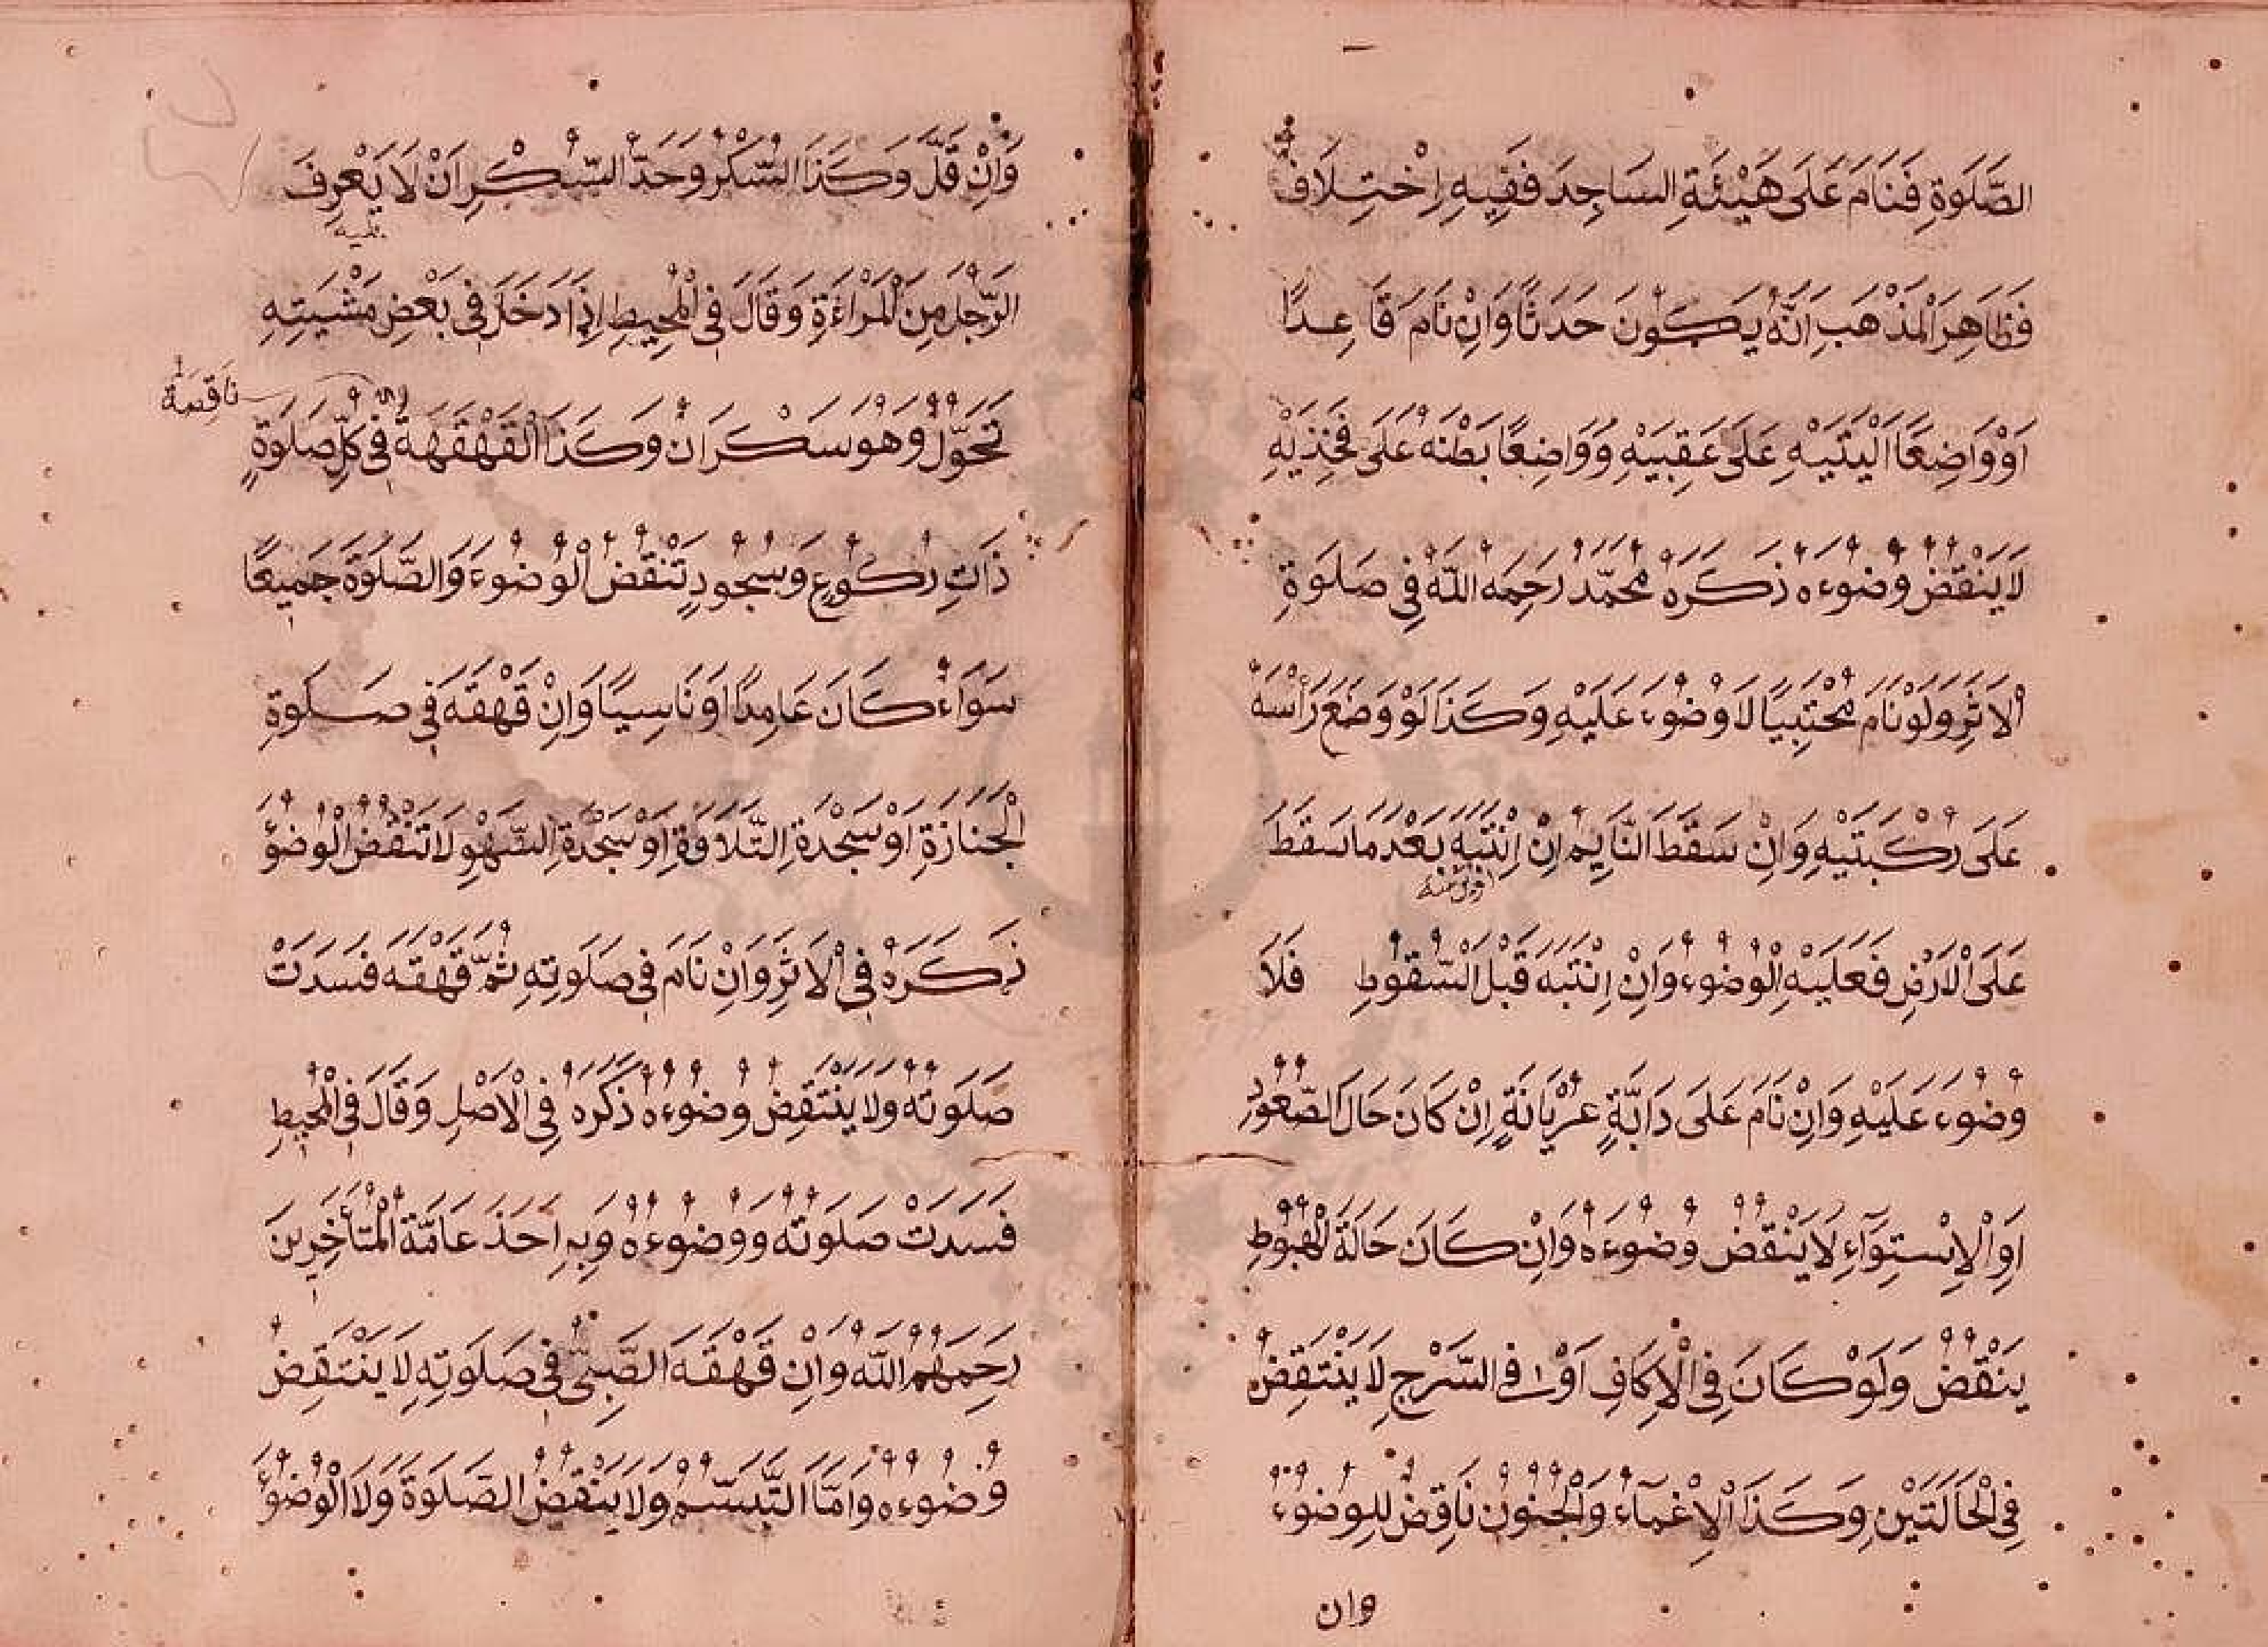 الصَّلَوةِ فَنَامَ عَلَى هَيْئَةِ السَاجِدَ فَفِيهِ اِخْتِلَافٌ
فَظَاهِرَ الْمَذْهَبِ اَنَّهُ يَكُونَ حَدَثًا وَاِنْ نَامَ قَاعِدًا
اَوْ وَاضِعًا اَلْيَتَيْهِ عَلَى عَقِبَيْهِ وَوَاضِعًا بَطْنَهُ عَلَى فَخِذَيْهِ
لَا يَنْقُضُ وُضُوءُهُ ذَكَرَهُ مُحَمَّدُ رَحِمَهُ اللّٰهُ فِي صَلَوةِ
الْاَثَرِ وَلَوْ نَامَ مُحْتَبِيًا لَا وُضُوءَ عَلَيْهِ وَكَذَا لَوْ وَضَعَ رَأْسَهُ
عَلَى رُكْبَتَيْهِ وَاِنْ سَقَطَ النَّايِمُ اِنْ اِنْتَبَهَ بَعْدَ مَا سَقَطَ
عَلَى الْاَرْضِ فَعَلَيْهِ الْوُضُوءُ وَاِنْ اِنْتَبَهَ قَبْلَ السُّقُوطِ فَلَا
وُضُوءَ عَلَيْهِ وَاِنْ نَامَ عَلَى دَابَّةٍ عُرْيَانَةٍ اِنْ كَانَ حَالَ الصُّعُودِ
اَوِ الْاِسْتِوَآءِ لَا يَنْقُضُ وُضُوءَهُ وَاِنْ كَانَ حَالَةَ الْهُبُوطِ
يَنْقُضُ وَلَوْ كَانَ فِي الْاِكَافِ اَوْ فِي السَّرْجِ لَا يَنْتَقِضُ
فِي الْحَالَتَيْنِ وَكَذَا الْاِغْمَآءُ وَالْجُنُونُ نَاقِضٌ لِلْوُضُوءِ
وان
وَاِنْ قَلَّ وَكَذَا السُّكْرُ وَحَدُّ السُّكْرِ اَنْ لَا يَعْرِفَ
الرَّجُلَ مِنَ الْمَرْاَةِ وَقَالَ فِي الْمُحِيطِ اِذَا دَخَلَ فِي بَعْضِ مَشْيَتِهِ
تَحَوُّلٌ وَهُوَ سَكْرَانُ وَكَذَا الْقَهْقَهَةُ فِي كُلِّ صَلَوةٍ
ذَاتِ رُكُوعٍ وَسُجُودٍ تَنْقُضُ الْوُضُوءَ وَالصَّلَوةَ جَمِيعًا
سَوَاءٌ كَانَ عَامِدًا اَوْ نَاسِيًا وَاِنْ قَهْقَهَ فِي صَلَوةِ
الْجَنَازَةِ اَوْ سَجْدَةِ التِّلَاوَةِ اَوْ سَجْدَةِ السَّهْوِ لَا تَنْقُضُ الْوُضُوءَ
ذَكَرَهُ فِي الْاَثَرِ وَاِنْ نَامَ فِي صَلَوتِهِ ثُمَّ قَهْقَهَ فَسَدَتْ
صَلَوتُهُ وَلَا يَنْتَقِضُ وُضُوءُهُ ذَكَرَهُ فِي الْاَصْلِ وَقَالَ فِي الْمُحِيطِ
فَسَدَتْ صَلَوتُهُ وَوُضُوءُهُ وَبِهِ اَخَذَ عَامَّةُ الْمُتَأَخِّرِينَ
رَحِمَهُمُ اللّٰهُ وَاِنْ قَهْقَهَ الصَّبِيُّ فِي صَلَوتِهِ لَا يَنْتَقِضُ
وُضُوءُهُ وَاَمَّا التَّبَسُّمُ وَلَا يَنْقُضُ الصَّلَوةَ وَلَا الْوُضُوءَ